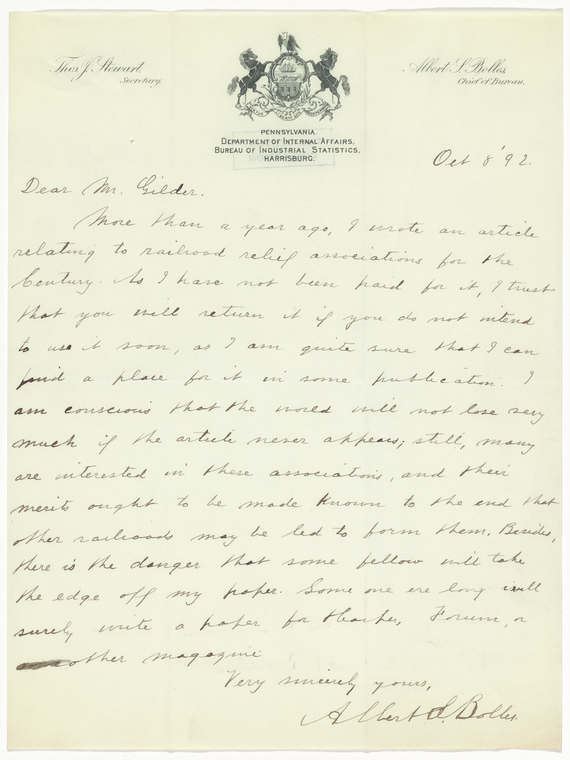 Thos. J. Stewart,
Secretary.
Albert S. Bolles,
Chief of Bureau.
PENNSYLVANIA.
DEPARTMENT OF INTERNAL AFFAIRS,
BUREAU OF INDUSTRIAL STATISTICS,
HARRISBURG.
Oct 8 '92.
Dear Mr. Gilder.
More than a year ago, I wrote an article
relating to railroad relief associations for the
Century. As I have not been paid for it, I trust
that you will return it if you do not intend
to use it soon, as I am quite sure that I can
find a place for it in some publication. I
am conscious that the world will not lose very
much if the article never appears; still, many
are interested in these associations, and their
merits ought to be made known to the end that
other railroads may be led to form them. Besides,
there is the danger that some fellow will take
the edge off my paper. Some one ere long will
surely write a paper for Harper, Forum, or
other magazine
Very sincerely yours,
Albert S. Bolles.